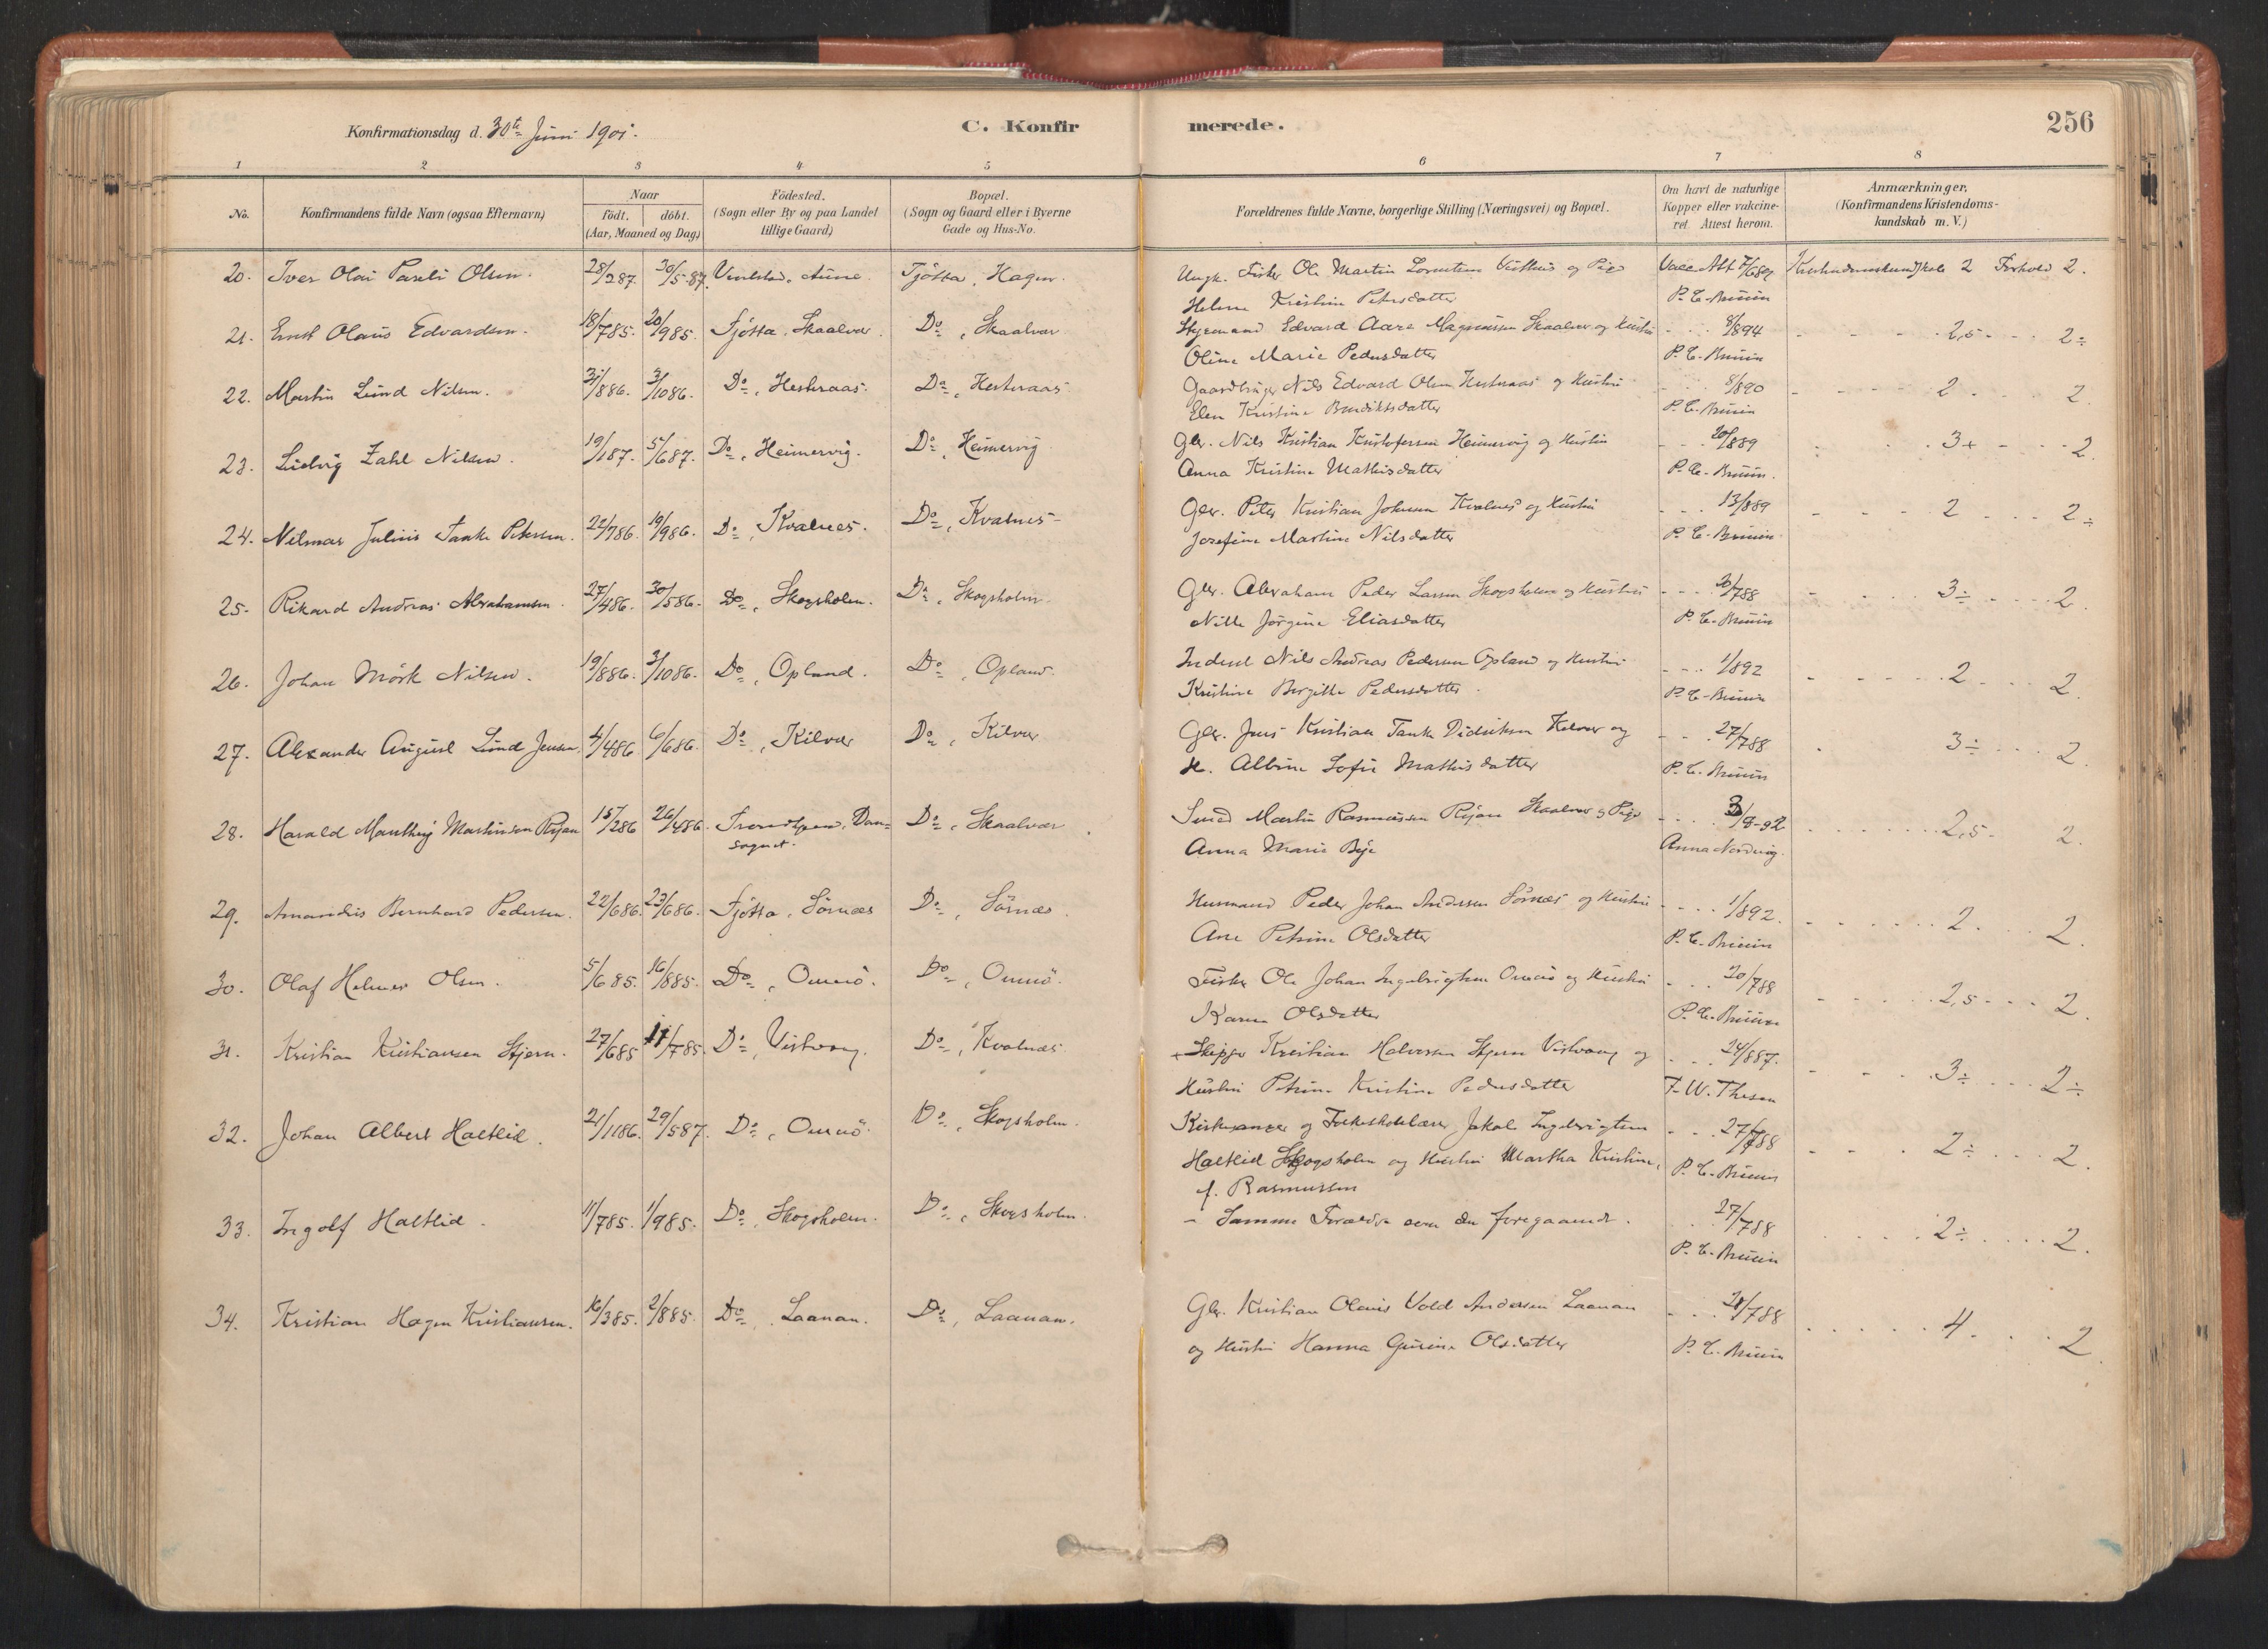 Konfirmationsdag d. 30te Juni 1901.
C. Konfirmerede.
256
1 2 3 4 5 6 7 8
No.
Konfirmandens fulde Navn (ogsaa Efternavn)
Naar
födt. döbt.
(Aar, Maaned og Dag)
Födested.
(Sogn eller By og paa Landet
tillige Gaard)
Bopæl.
(Sogn og Gaard eller i Byerne
Gade og Hus-No.
Forældrenes fulde Navne, borgerlige Stilling (Næringsvei) og Bopæl.
Om havt de naturlige
Kopper eller vakcine-
ret. Attest herom.
Anmærkninger.
(Konfirmandens Kristendoms-
kundskab m. V.)
20. Iver Olai Olsen. 28/287. 30/5-87. Aune. Tjötta, Hagen. Ungk. Fisker Ole Martin og Pige Vacc. Att 7/689 Kristendomskundskab 2 Forhold 2.
Helene Kristine Petersdatter P. C. Bruun
21. Ernst Olaus Edvardsen. 18/785. 20/985. Tjötta, Skaalvær. Do, Skaalvær. Styrmand Edvard Aara Magnussen Skaalvær og Hustru - - 8/894 - - - 2,5 - - - 2÷
Oline Marie Pedersdatter P. C. Bruun
22. Martin Lund Nilsen. 31/886. 3/1086. Do, Hestnaas. Do, Hestnaas. Gaardbruger Nils Edvard Olsen Hestnaas og Hustru - - 8/890 - - - 2 - - - 2.
Elen Kristine Bendiktsdatter P. C. Bruun
23. Ludvig Zahl Nilsen. 19/187. 5/687. Do, Heimervig. Do, Heimervig Gbr. Nils Kristian Kristofersen Heimervig og Hustru - - 20/889 - - - 3+ - - - 2.
Anna Kristine Mathisdatter P. C. Bruun.
24. Nilmar Julius Tanke Petersen. 22/786. 19/986. Do, Kvalnes. Do, Kvalnes- Gbr. Peter Kristian Johnsen Kvalnes og Hustru - - 13/889 - - - 2 - - - 2÷
Josefine Martine Nilsdatter P. C. Bruun
25. Rikard Andreas Abrahamsen. 27/486. 30/586. Do, Skogsholm. Do, Skogsholm. Gbr. Abraham Peder Larsen Skogsholm og Hustru - - 20/788 - - - 3÷ - - - 2.
Nille Jörgine Eliasdatter P. C. Bruun
26. Johan Mörk Nilsen. 19/886. 3/1086. Do, Opland. Do, Opland. Inderst Nils Andreas Pedersen Opland og Hustru - - 1/892 - - - 2 - - - 2.
Kristine Bergitte Pedersdatter. P. C. Bruun
27. Alexander August Lund Jensen. 4/486 6/686. Do, Kilvær Do, Kilvær Gbr. Jens Kristian Tanke Didriksen Kilvær og - - 27/788 - 3÷ - - - 2.
H. Albine Sofie Mathisdatter P. C. Bruun
28. Harald Manthey Martinsen Ryan 15/286 26/486. Trondhjem, Dom=
sognet. Do, Skaalvær Smed Martin Rasmussen Ryan Skaalvær og Pige - - 3/8-92 - - - 2,5- 2.
Anna Marie Bye Anna Nordvig.
29. Amandus Bernhard Pedersen. 22/686. 23/686. Tjötta, Sörnæs Do, Sörnæs. Husmand Peder Johan Andersen Sörnæs og Hustru - - 1/892. - - - 2. - - 2.
Ane Petrine Olsdatter P. C. Bruun
30. Olaf Helmer Olsen. 5/685. 16/885. Do, Omnö. Do, Omnö. Fisker Ole Johan Ingebrigtsen Omnö og Hustru - - 20/788 - - - 2,5 - - - 2.
Karen Olsdatter P. C. Bruun
31. Kristian Kristiansen Stjern. 27/685 11/785. Do, Vistvaag. Do, Kvalnæs. + Skipper Kristian Halvorsen Stjern Vistvaag og - - 24/887. - - - 3÷ - - - 2÷
Hustru Petrine Kristine Pedersdatter F. W. Thesen
32. Johan Albert Haltlid. 21/1186. 29/587. Do, Omnö. Do, Skogsholm. Kirkesanger og Folkeskolelærer Jakob Ingebrigtsen - - 27/788 - - - 2÷ - - - 2.
Haltlid Skogsholm og Hustru Martha Kristine, P. C. Bruun
f. Rasmussen
33. Ingolf Haltlid. 11/785. 1/985. Do, Skogsholm. Do, Skogsholm. - Samme Forældre som den foregaaende. 27/788 - - - 2÷ - - - 2.
P. C. Bruun
34. Kristian Hagen Kristiansen. 16/385. 2/885. Do, Laanan. Do, Laanan. Gbr. Kristian Olaus Vold Andersen Laanan - - 20/788 - - - 4. - - 2.
og Hustru Hanna Gurine Olsdatter P. C. Bruun